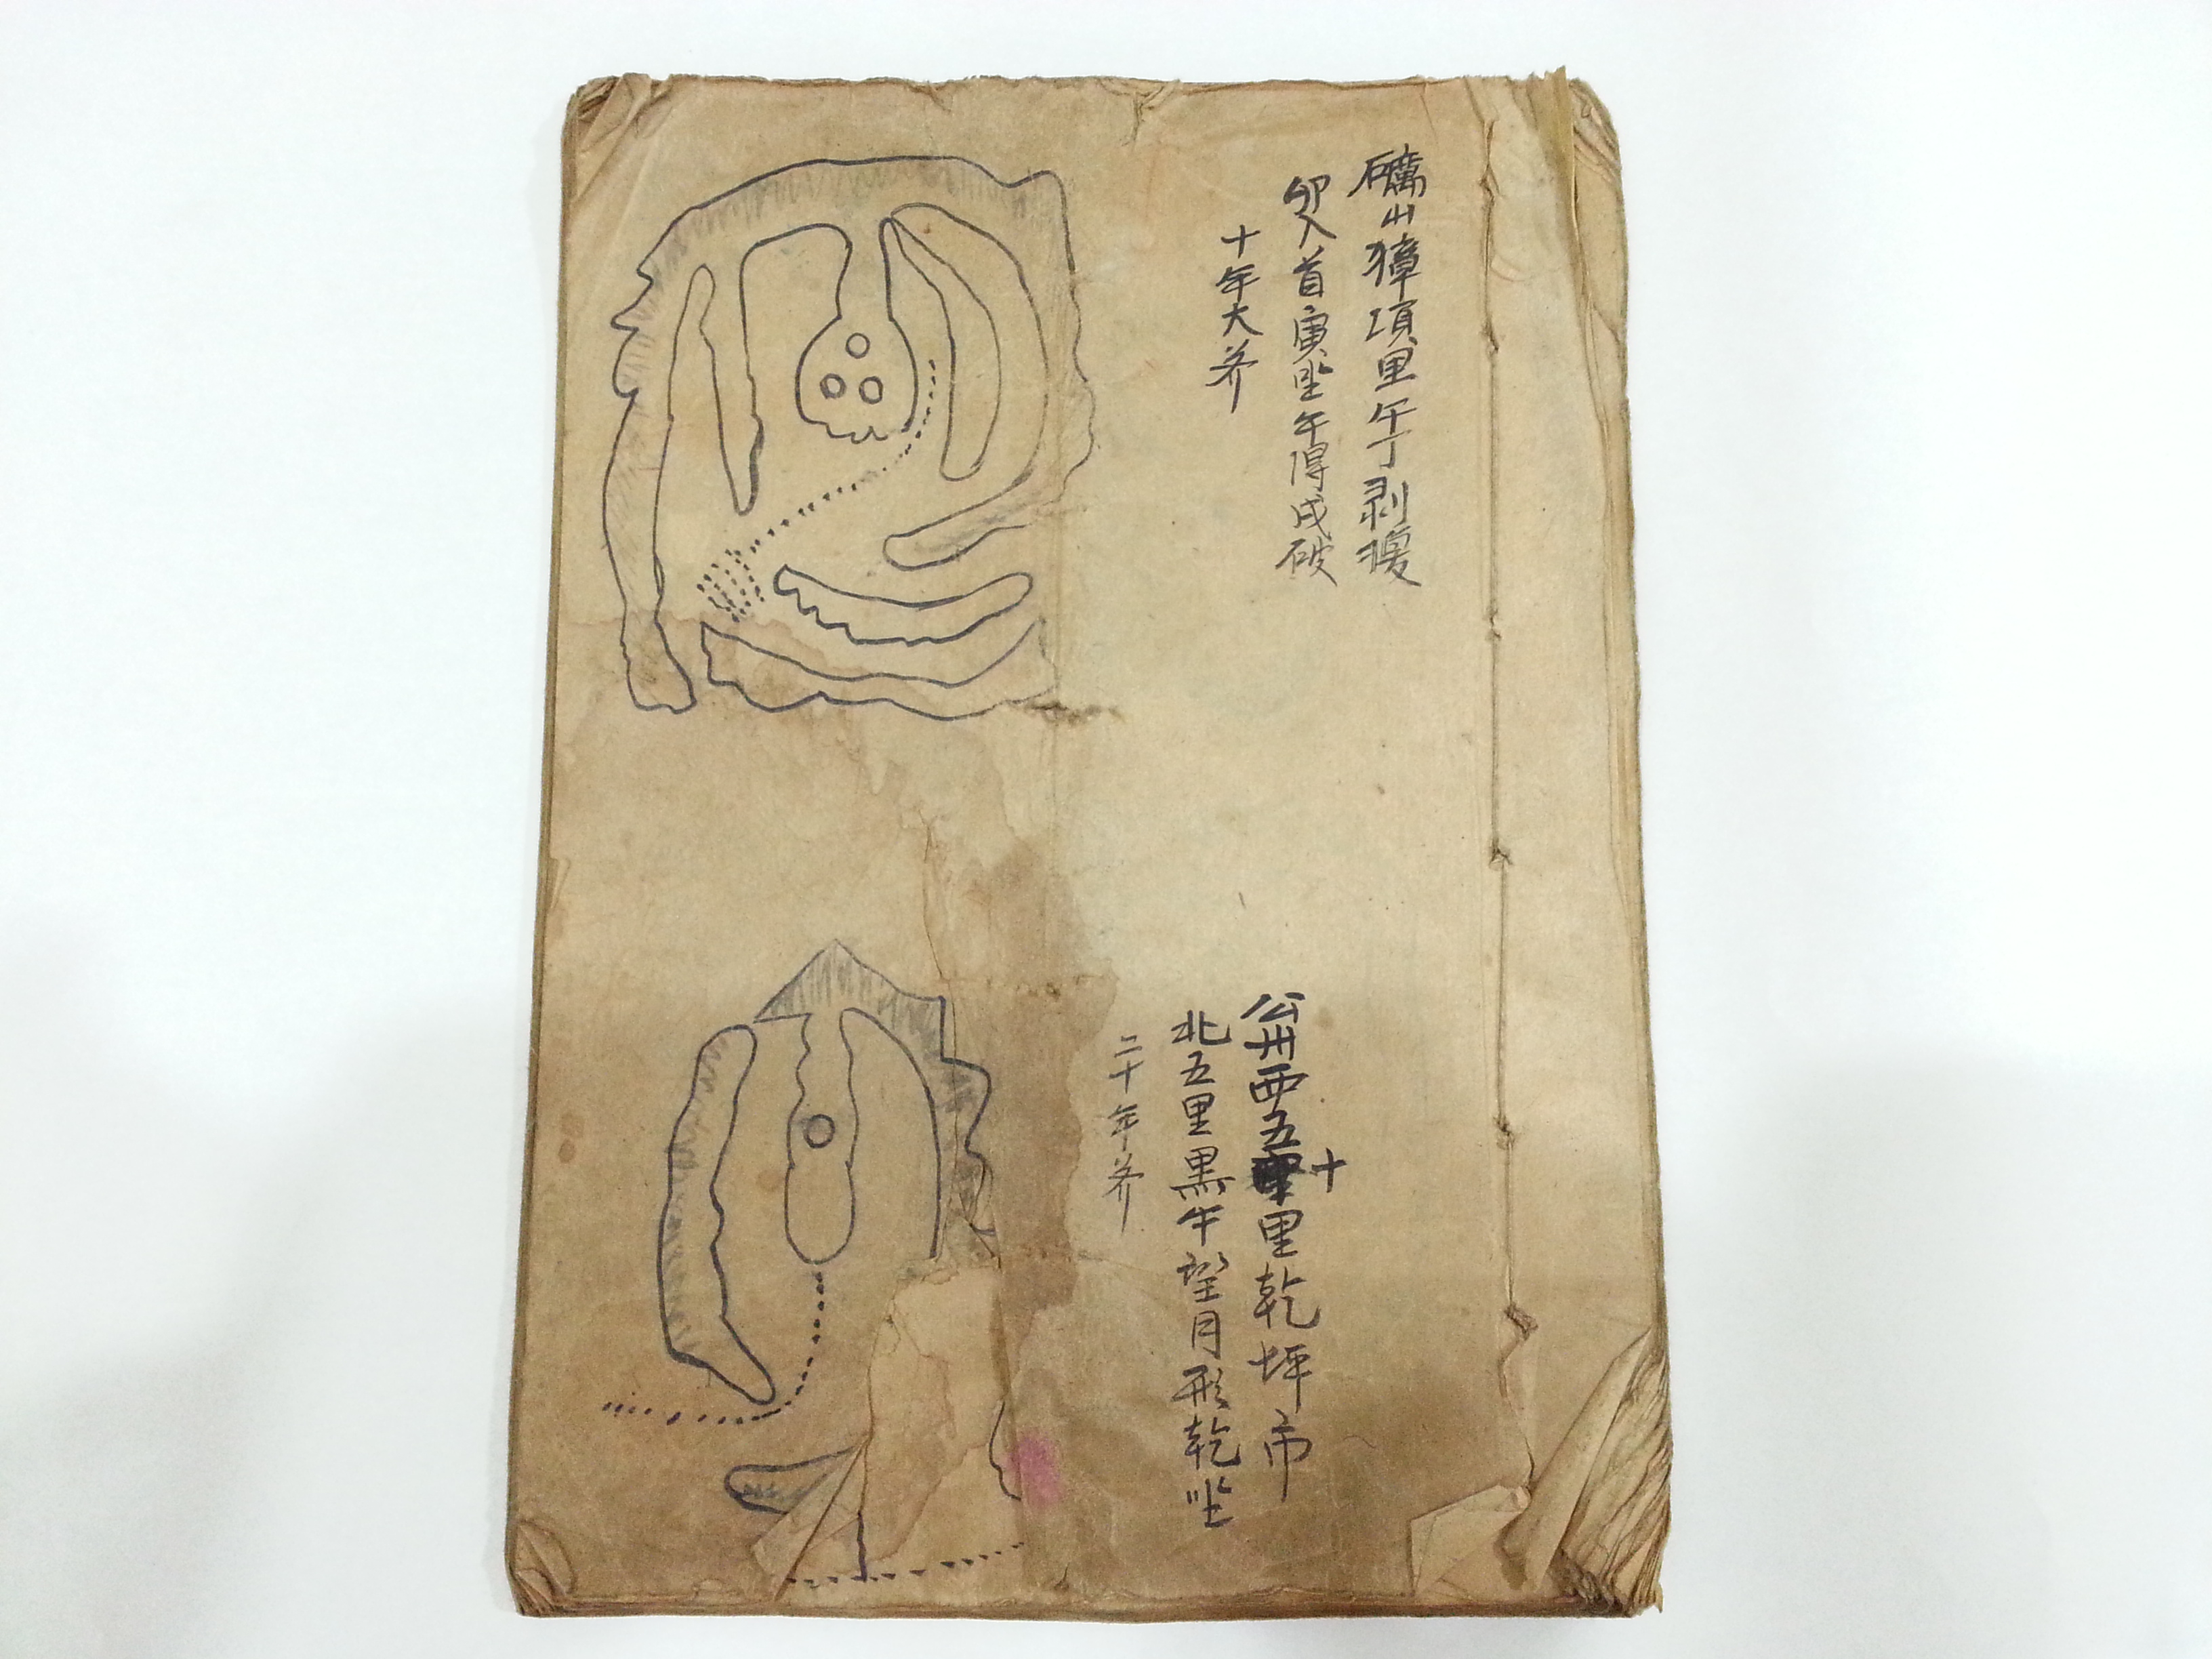 礪山獐項里午丁剥換
卯入首寅坐午得戌破
十年大笲
公州西五十里乾坪市
北五里黒牛望月形乾坐
二十年笲